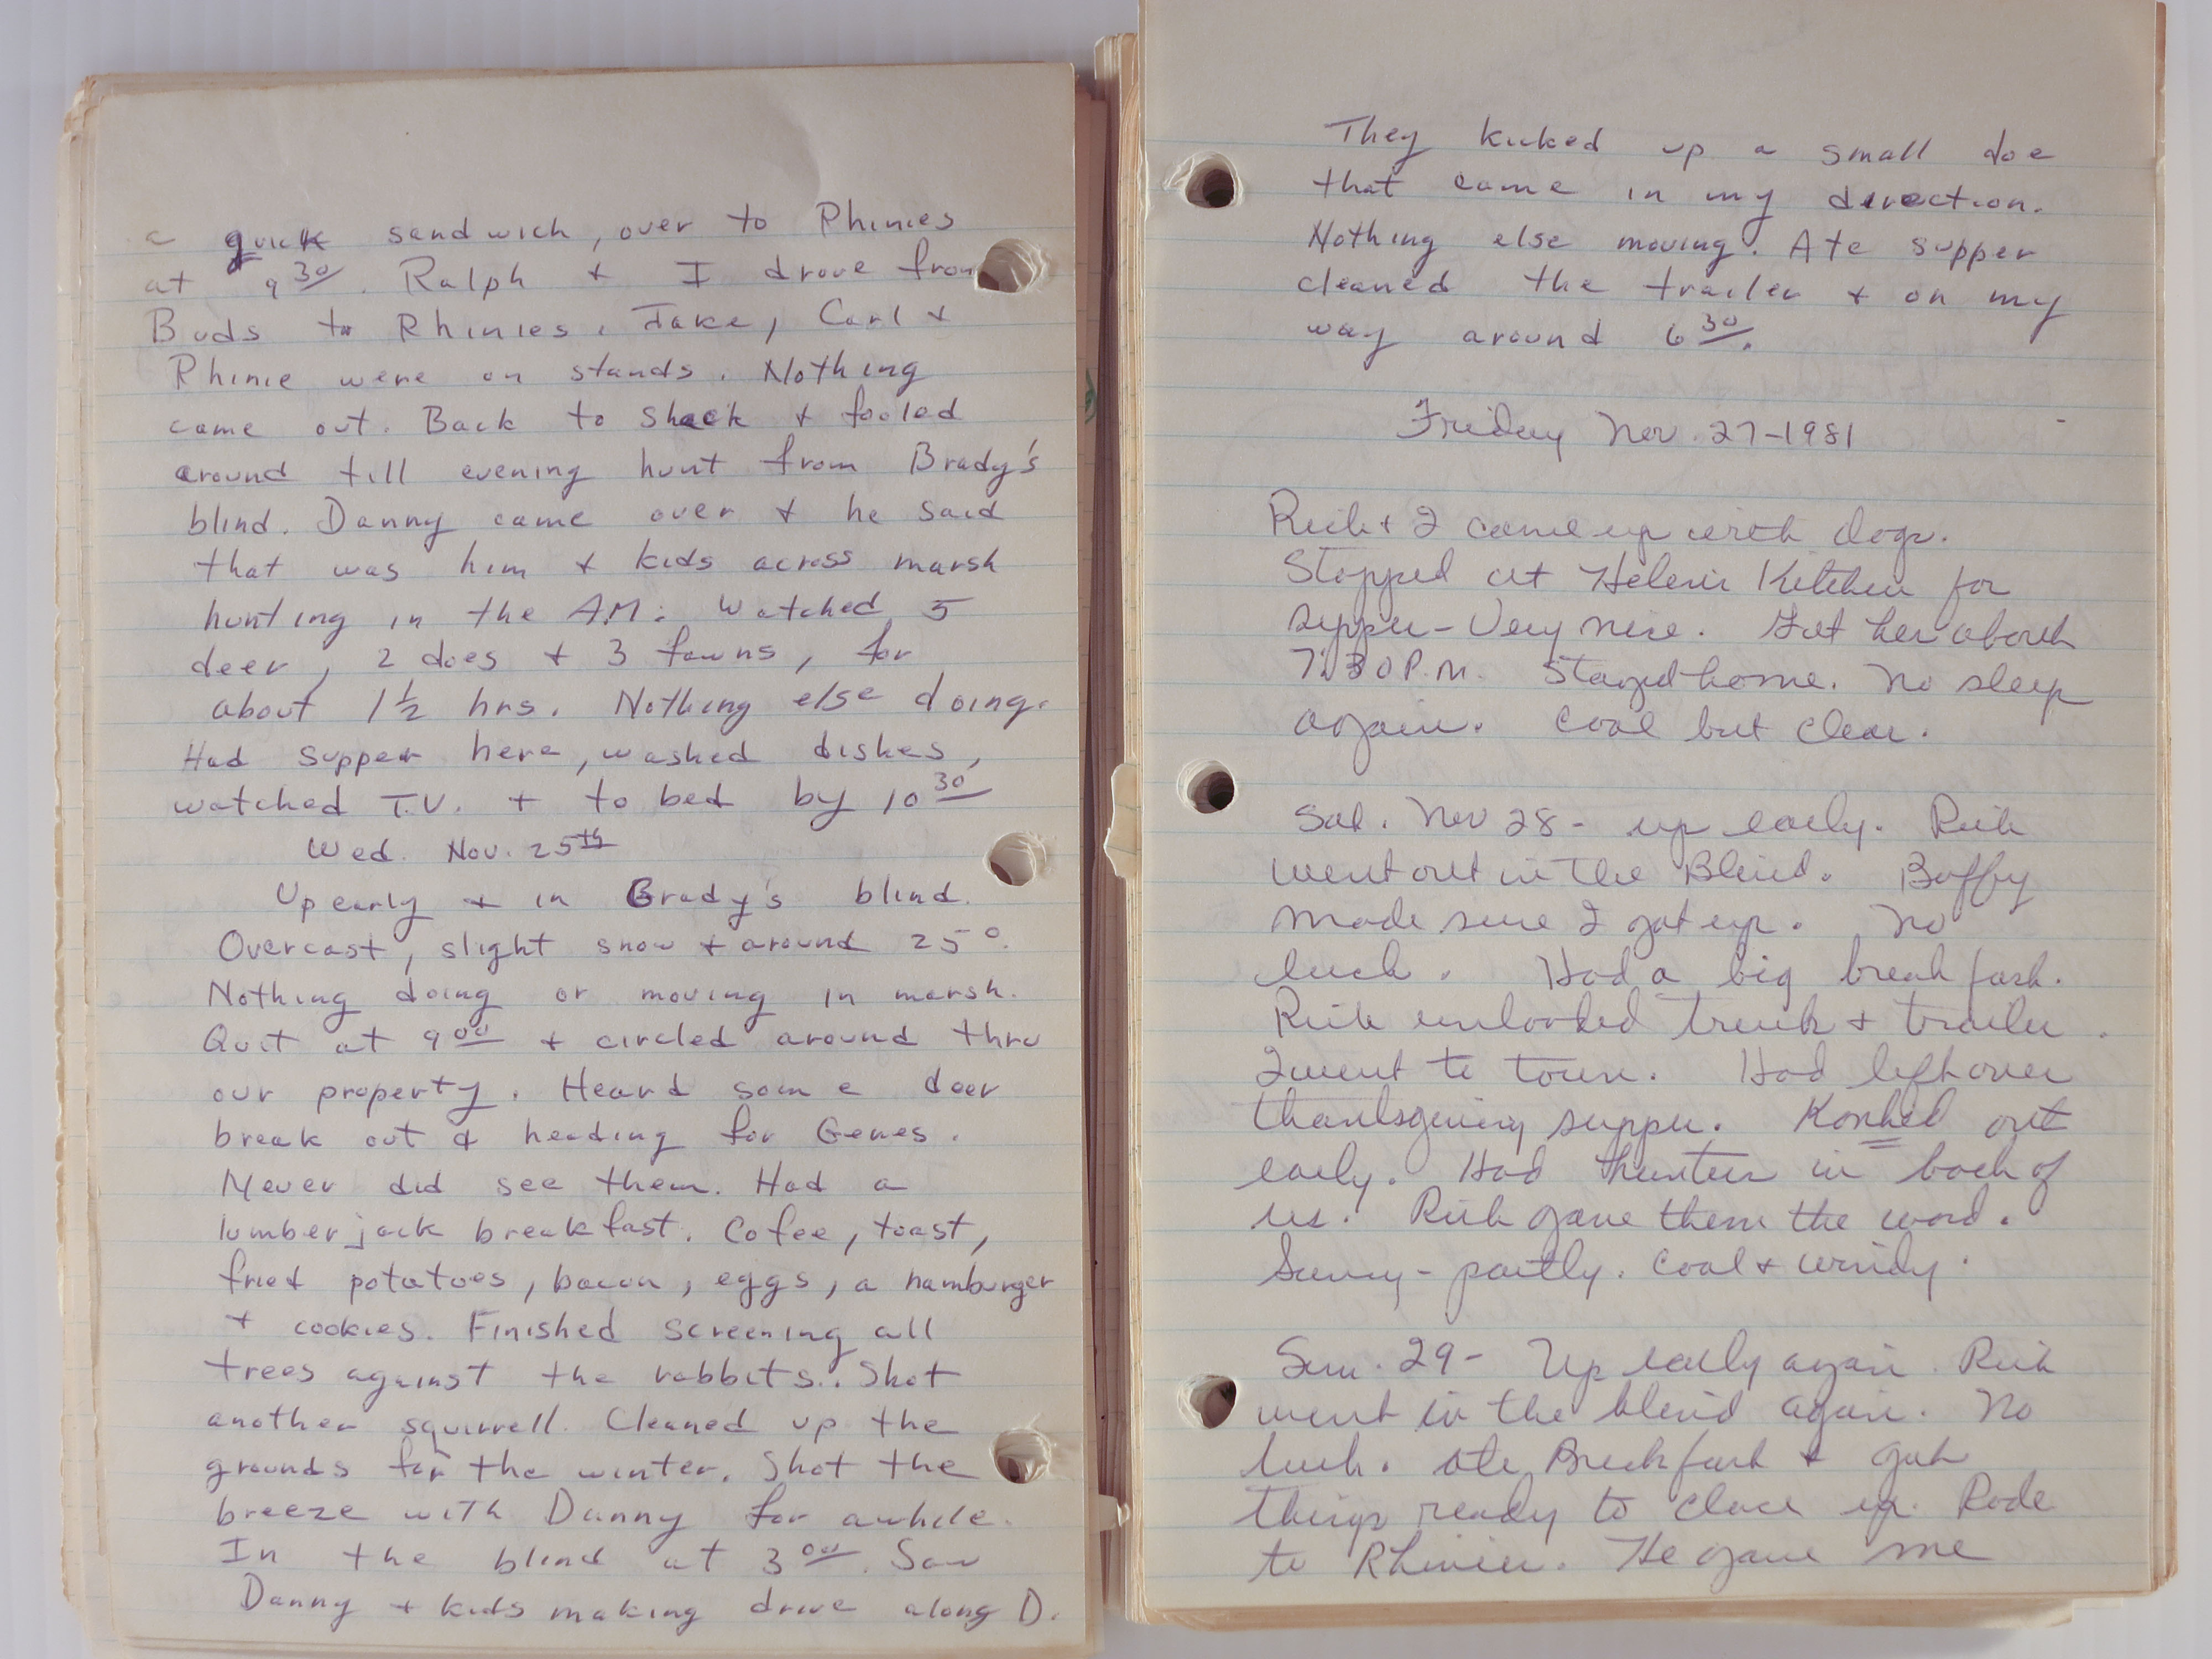 a quick sandwich, over to Rhinies
at 9 30. Ralph + I drove from
Buds to Rhinies. Jake, Carl +
Rhinie were on stands. Nothing
came out. Back to shack + fooled
around till evening hunt from Brady's
blind. Danny came over + he said
that was him + kids across marsh
hunting in the A.M. Watched 5
deer, 2 does + 3 fawns, for
about 1½ hrs. Nothing else doing.
Had supper here, washed dishes,
watched T.V. + to bed by 10 30
Wed. Nov. 25th
Up early + in Brady's blind.
Overcast, slight snow + around 25°.
Nothing doing or moving in marsh.
Quit at 9 00 + circled around thru
our property. Heard some deer
break out & heading for Genes.
Never did see them. Had a
lumberjack breakfast. Cofee, toast,
fried potatoes, bacon, eggs, a hamburger
+ cookies. Finished screening all
trees against the rabbits. Shot
another squirrell. Cleaned up the
grounds for the winter. Shot the
breeze with Danny for awhile.
In the blind at 3 00. Saw
Danny + kids making drive along D.
They kicked up a small doe
that came in my direction.
Nothing else moving. Ate supper
cleaned the trailer + on my
way around 6 30.
Friday Nov. 27-1981
Rick + I came up with dogs.
Stopped at Helen's Kitchen for
supper - Very nice. Got her about
7:30 P.M. Stayed home. No sleep
again. Cool but clear.
Sat. Nov 28 - up early. Rick
went out in the Blind. Buffy
made sure I got up. No
luck. Had a big breakfast.
Rick unloaded truck + trailer.
I went to town. Had left over
thanksgiving supper. Konked out
early. Had hunters in back of
us. Rick gave them the word.
Sunny - partly. Cool + windy.
Sun. 29 - Up early again. Rick
went in the blind again. No
luck. Ate Breakfast + got
things ready to close up. Rode
to Rhinies. He gave me